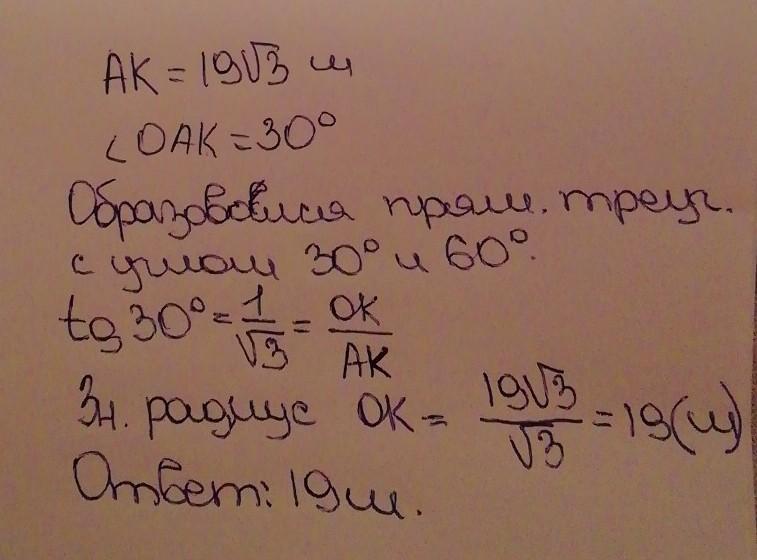 AK = 19√3 м
∠OAK = 30°
Образовался прям. треуг.
с углом 30° и 60°.
tg 30° = 1/√3 = OK/AK
Зн. радиус OK = 19√3/√3 = 19(м)
Ответ: 19 м.